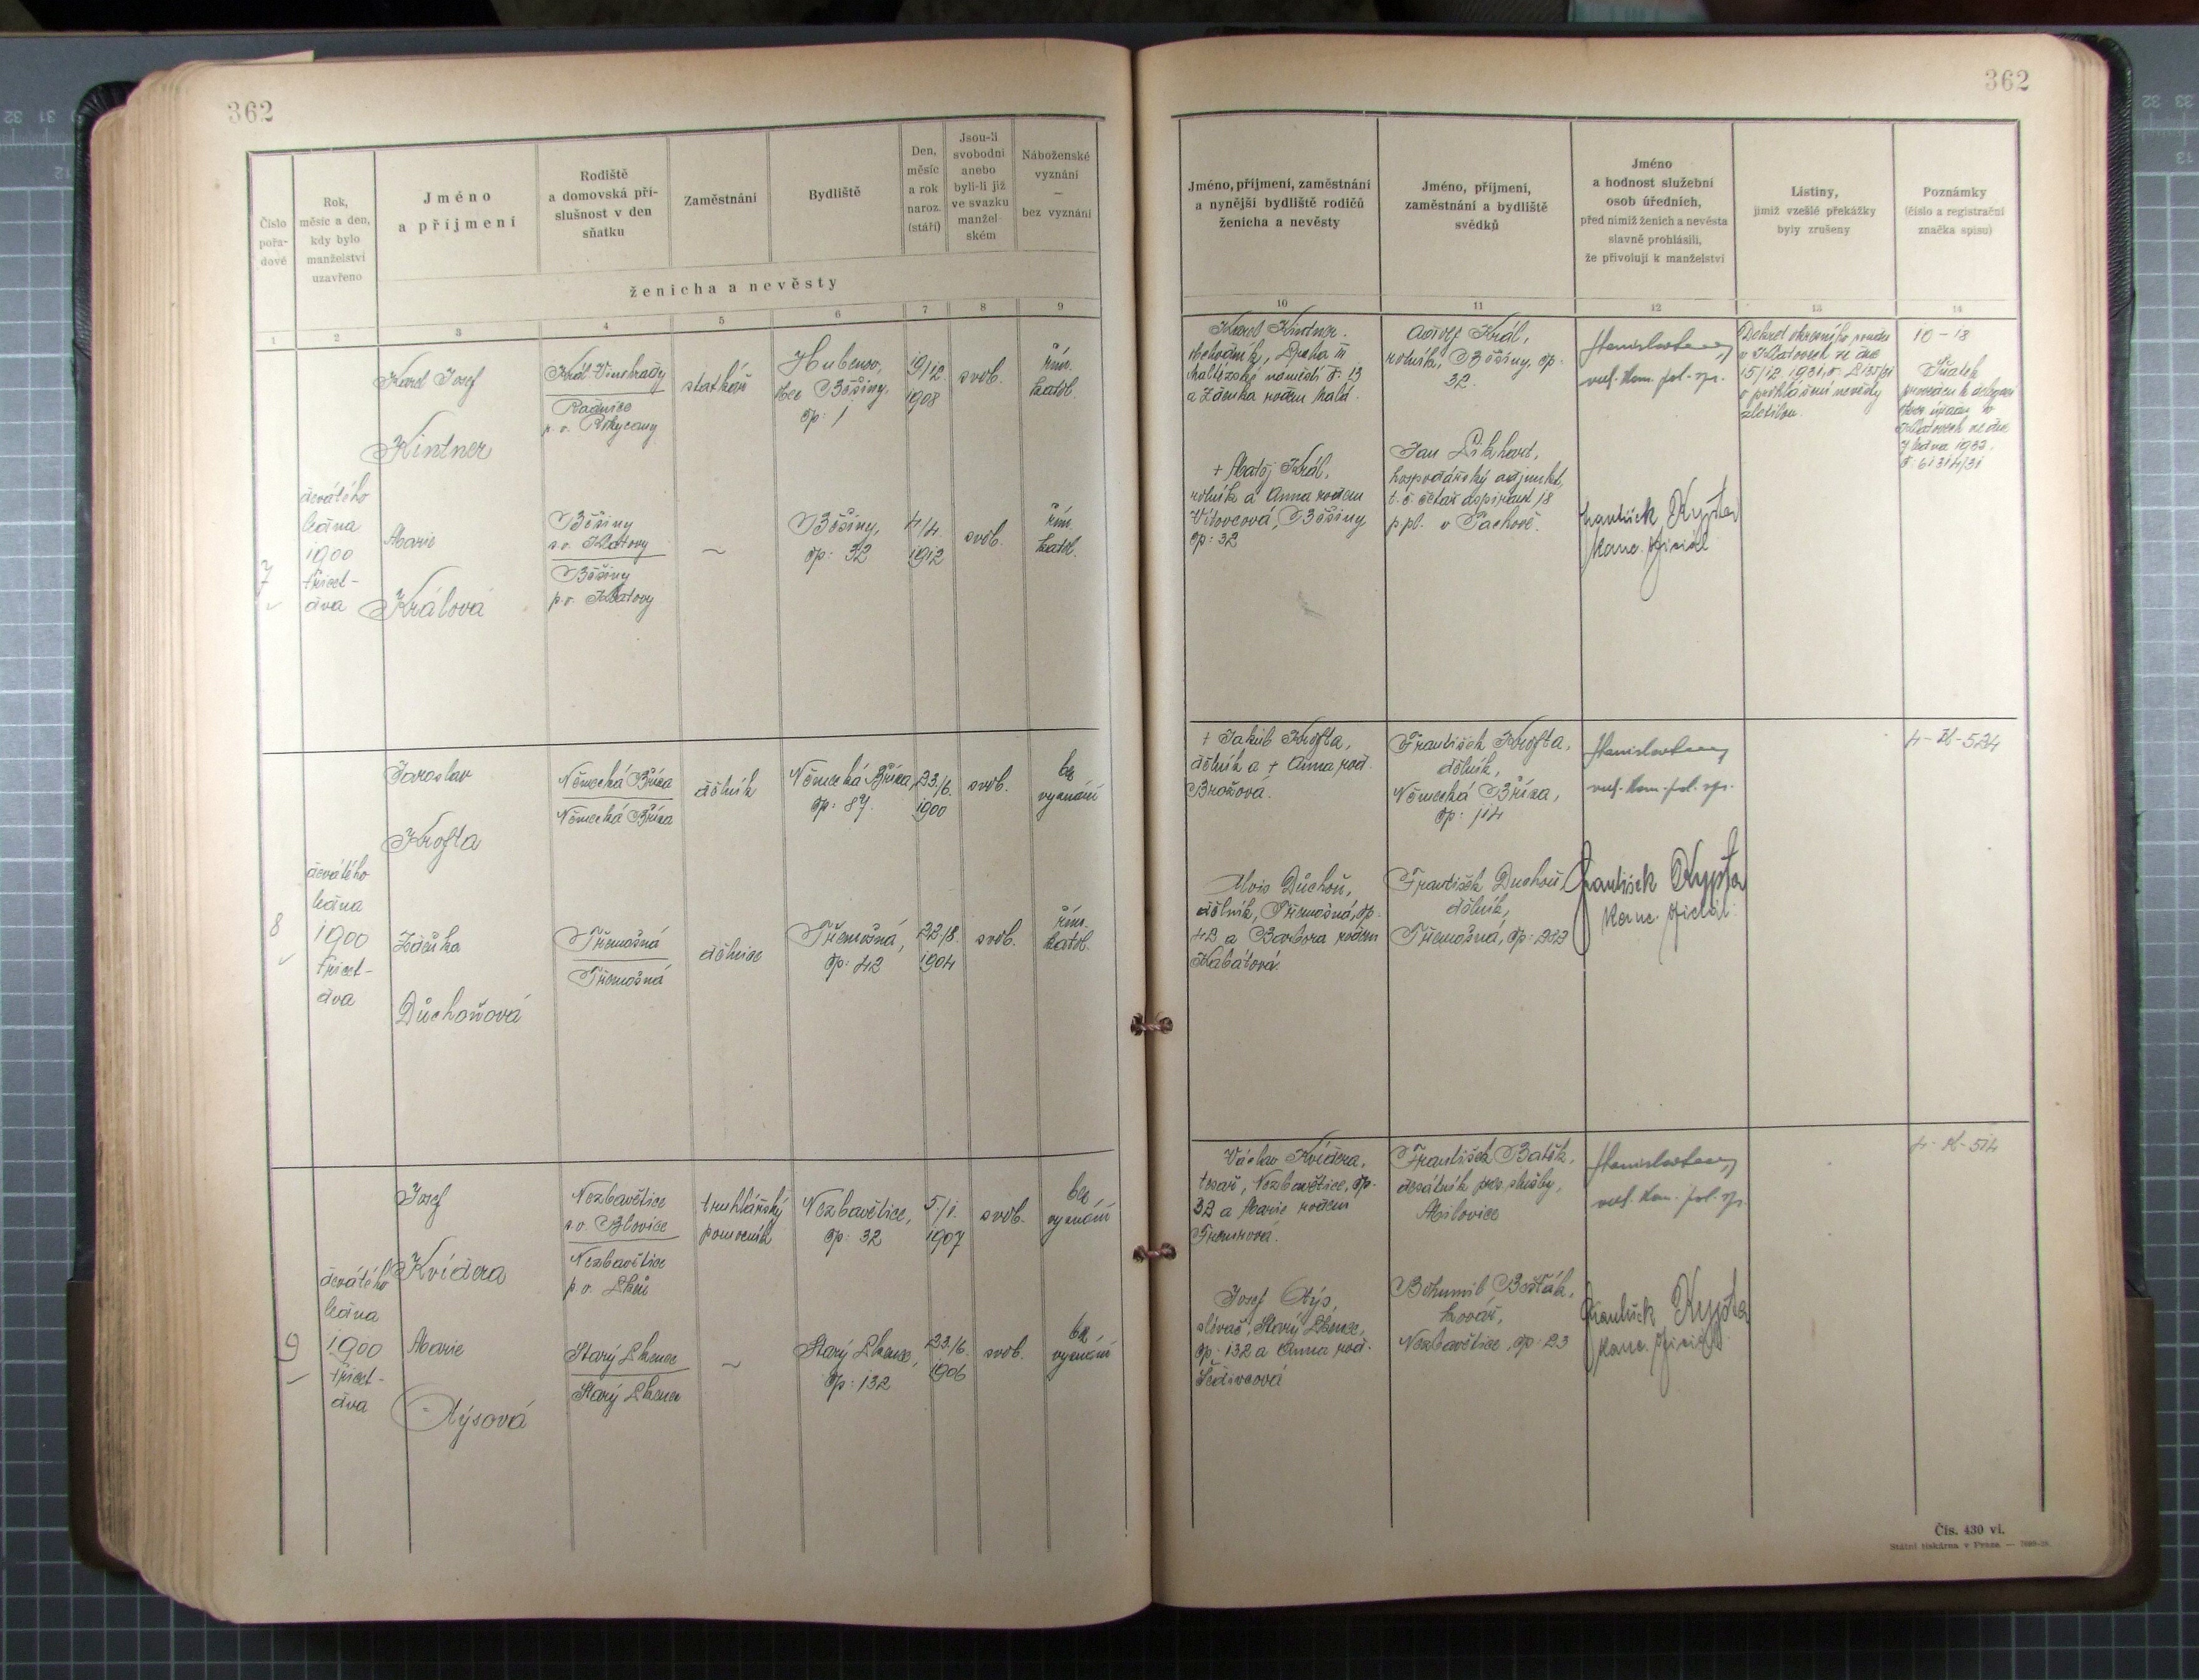 362
362
Číslo pořa- dové
Rok, měsíc a den, kdy bylo manželství uzavřeno
Jméno a příjmení
Rodiště a domovská pří- slušnost v den sňatku
Zaměstnání
Bydliště
Den, měsíc a rok naroz. (stáří)
Jsou-li svobodni anebo byli-li již ve svazku manžel- ském
Náboženské vyznání — bez vyznání
ženicha a nevěsty
Jméno, příjmení, zaměstnání a nynější bydliště rodičů ženicha a nevěsty
Jméno, příjmení, zaměstnání a bydliště svědků
Jméno a hodnost služební osob úředních, před nimiž ženich a nevěsta slavně prohlásili, že přivolují k manželství
Listiny, jimiž vzešlé překážky byly zrušeny
Poznámky (číslo a registrační značka spisu)
1 2 3 4 5 6 7 8 9 10 11 12 13 14
7
devátého
ledna
1900
třicet-
dva
Karel Josef
Kintner
Král. Vinohrady
Radnice
p. o. Rokycany
statkář
Hubenov,
obec Běšiny,
čp: 1
19/12
1908
svob.
řím.
katol.
Marie
Králová
Běšiny
s. o. Klatovy
Běšiny
p. o. Klatovy
~
Běšiny,
čp: 32
4/4.
1912
svob.
řím.
katol.
Karel Kintner.
obchodník, Praha III
Maltézské náměstí č: 13
a Zdenka rodem Malá.
+ Matěj Král,
rolník a Anna rodem
Vítovcová, Běšiny
čp: 32
Adolf Král,
rolník, Běšiny, čp:
32.
Jan Likhart,
hospodářský adjunkt,
t. č. četař aspirant 18
p. pl. v Tachově.
František Kypta
kanc. oficiál
15/12 1931,
o prohlášení nevěsty
zletilou.
10 - 18
Sňatek
Klatovech ze dne
7 ledna 1932,
č: 61314/31
8
devátého
ledna
1900
třicet-
dva
Jaroslav
Krofta
Německá Bříza
Německá Bříza
dělník
Německá Bříza,
čp: 87.
23./6.
1900
svob.
bez
vyznání
Zdeňka
Důchoňová
Třemošná
Třemošná
dělnice
Třemošná,
čp: 42
22/8.
1904
svob.
řím.
katol.
+ Jakub Krofta,
dělník a + Anna rod.
Brožová.
Alois Důchoň,
dělník, Třemošná, čp.
42 a Barbora rodem
Kabátová.
František Krofta,
dělník,
Německá Bříza,
čp: 114
František Duchoň
dělník,
Třemošná, čp: 232
František Kypta
kanc. oficiál.
4 - K - 524
9
devátého
ledna
1900
třicet-
dva
Josef
Kvídera
Nezbavětice
s. o. Blovice
Nezbavětice
p. o. Plzeň
truhlářský
pomocník
Nezbavětice,
čp: 32
5/1.
1907
svob.
bez
vyznání
Marie
Rýsová
Starý Plzenec
Starý Plzenec
~
Starý Plzenec,
čp: 132
23./6.
1906
svob.
bez
vyznání
Václav Kvídera,
tesař, Nezbavětice, čp.
32 a Marie rodem
Josef Rýs,
slévač, Starý Plzenec,
čp: 132 a Anna rod.
Šedivcová
František Batěk,
desátník pres. služby,
Milovice
Bohumil Bošťák,
kovář,
Nezbavětice, čp: 23
František Kypta
kanc. oficiál
4 - K - 514
Čís. 430 vi.
Státní tiskárna v Praze. —